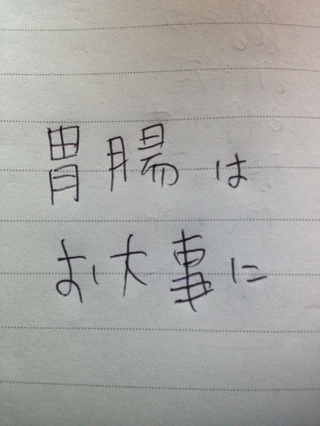 胃腸は
お大事に